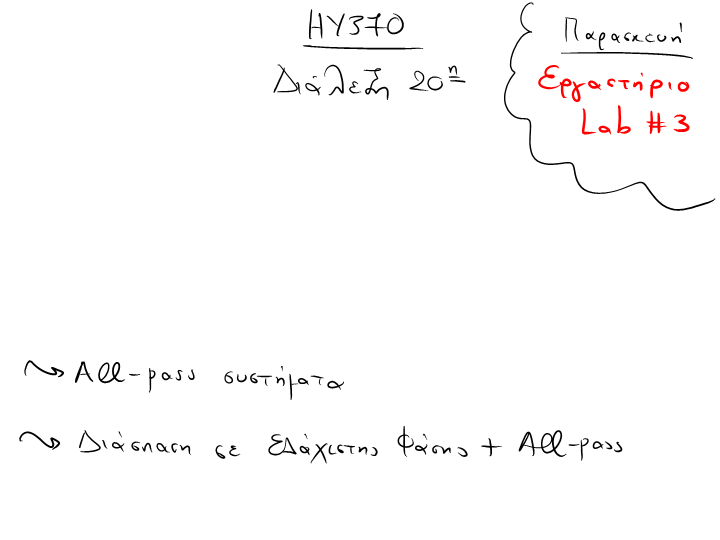 HY370
Διάλεξη 20η
Παρασκευή
Εργαστήριο
Lab #3
All-pass συστήματα
Διάσπαση σε Ελάχιστης Φάσης + All-pass